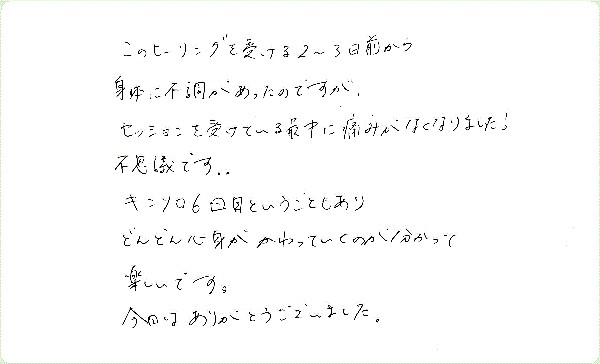 このヒーリングを受ける2～3日前から
身体に不調があったのですが、
セッションを受けている最中に痛みがなくなりました！
不思議です．．
キンソロ6回目ということもあり
どんどん心身がかわっていくのが分かって
楽しいです。
今回はありがとうございました。